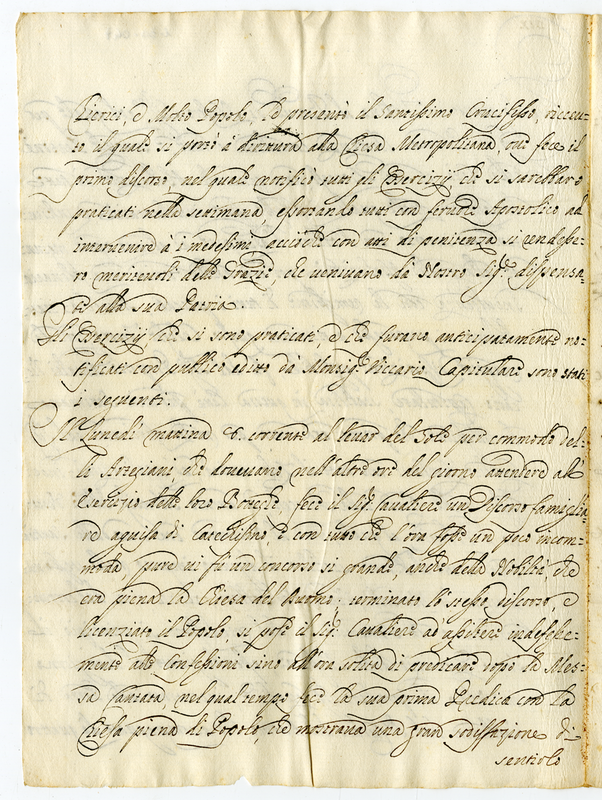 Clerici, è Molto Popolo, le presentò il Santissimo Crucifisso, riceuu-
to il quale si portò à dirittura alla Chiesa Metropolitana, oue fece il
primo discorso, nel quale notificò tutti gli Esercizij, che si sarebbaro
praticati nella settimana, essortando tutti con feruore Apostolico ad
interuenire à i medesimi, acciòche con atti di penitenza si rendesse-
ro meritevoli delle Grazie, che ueniuano dà Nostro Sig.re dispensa-
te alla sua Patria.
Gli Esercizij che si sono praticati, e che furano anticipatamente no-
tificati con publico editto dà Monsig.r Viccario Capitulare sono stati
i seguenti.
Il Lunedi mattina 6. corrente al leuar del Sole per commodo del-
li Arteziani che doueuano nell'altre ore del giorno attendere all'
esercizio delle loro Botteghe, fece il Sig.r Caualiere un Discorso famiglia-
re aguisa di Catechismo, e con tutto che l'ora fosse un poco incom-
moda, pure ui fù un concorso si grande, anche della Nobiltà, che
era piena la Chiesa del Duomo; terminato lo stesso discorso, e
licenziato il Popolo, si pose il Sig.r Caualiere ad assistere indefesse-
mente alle Confessioni sino all'ora solita di predicare dopo la Mes-
sa cantata, nel qual tempo fece la sua prima Predica con la
Chiesa piena di Popolo, che mostraua una gran sodisfazione di
sentirlo